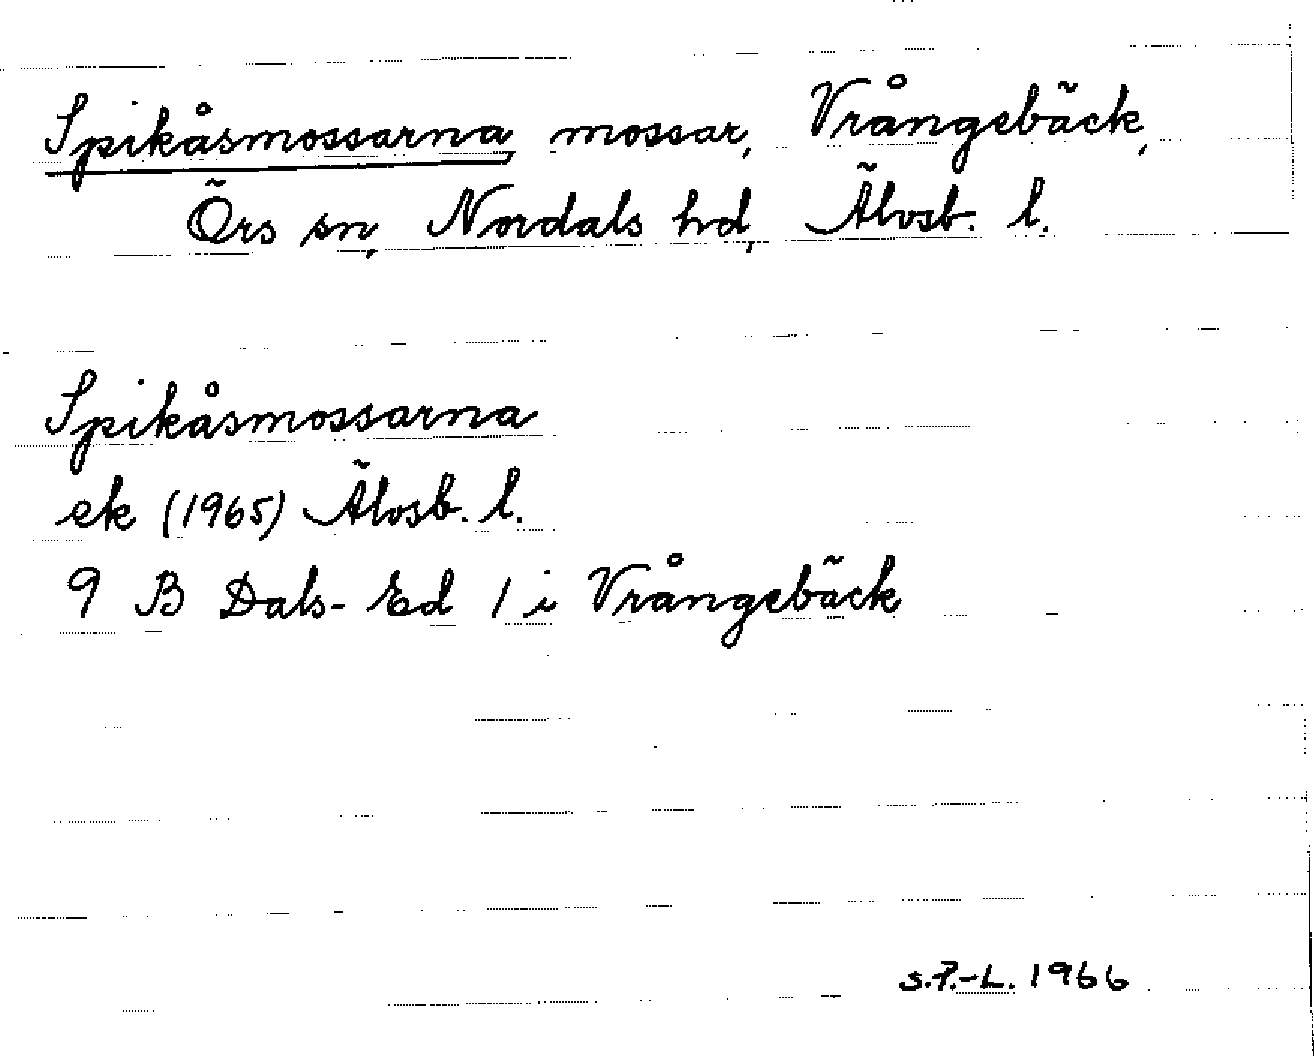 Spikåsmossarna, mossar, Vrångebäck,
Örs sn, Nordals hd, Älvsb. l.
Spikåsmossarna
ek (1965) Älvsb. l.
9 B Dals-Ed 1 i Vrångebäck
S.P.-L. 1966